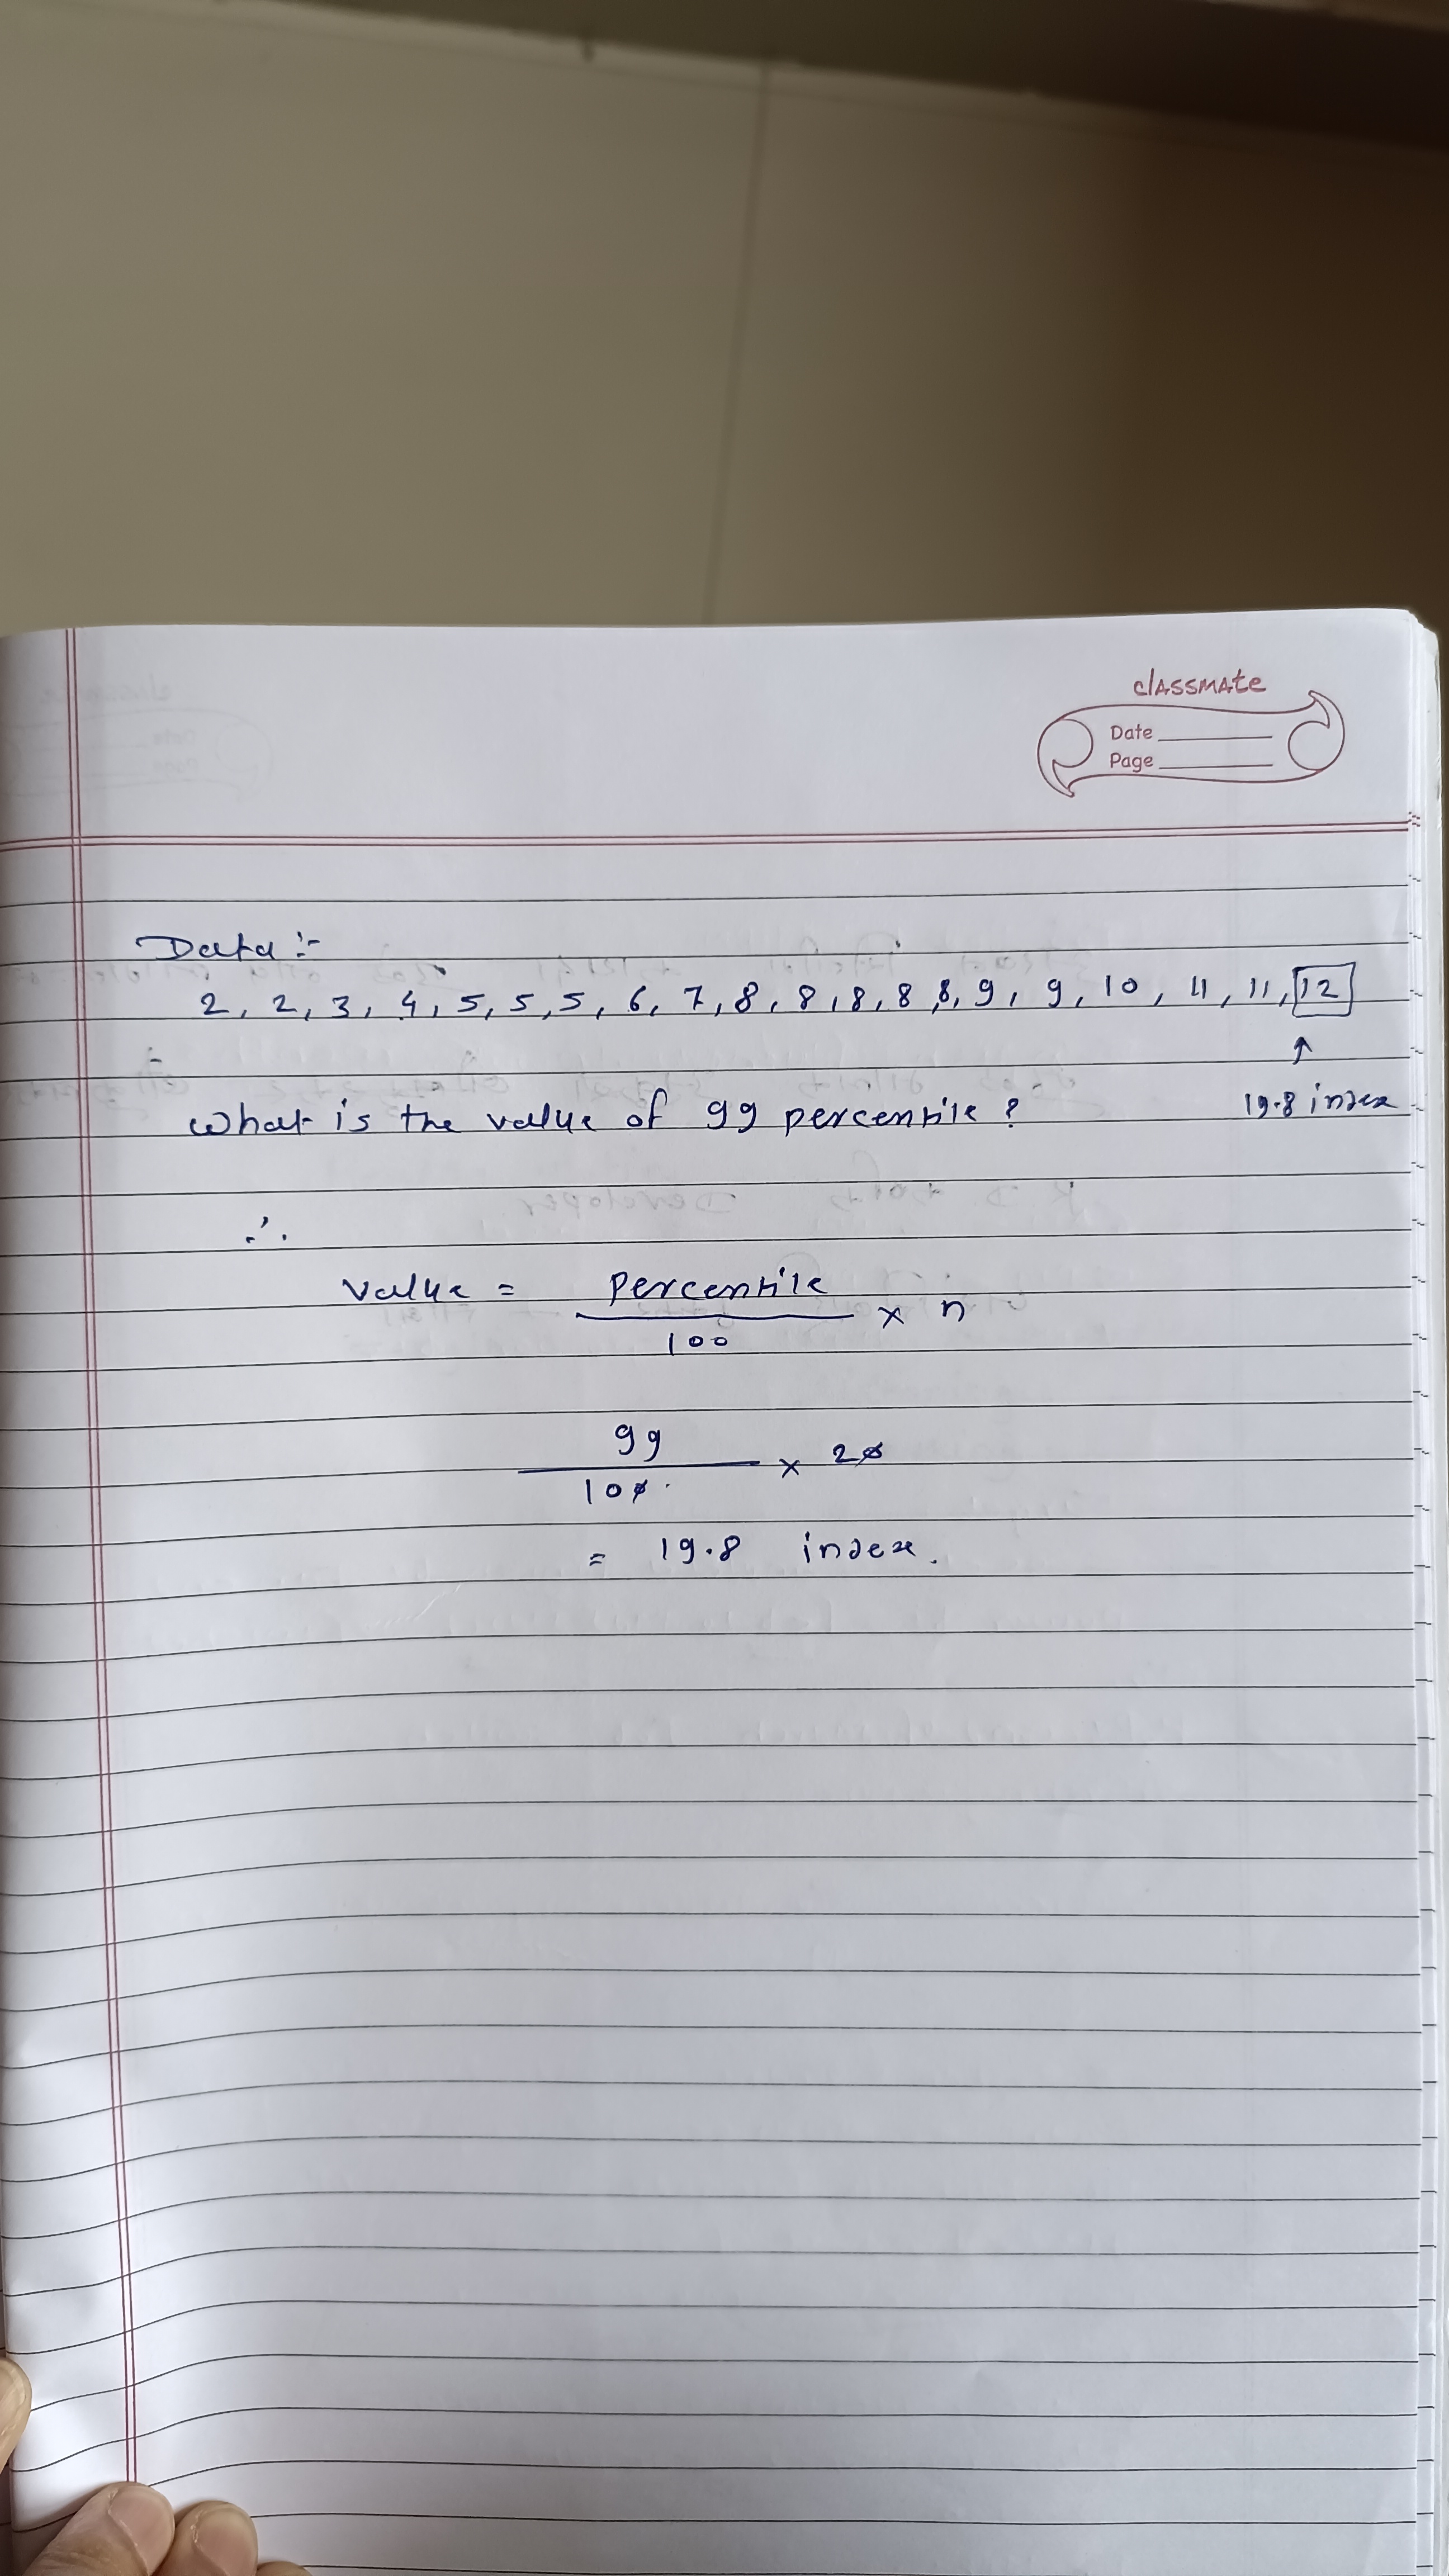 classmate
Date
Page
Data :-
2, 2, 3, 4, 5, 5, 5, 6, 7, 8, 8, 8, 8, 8, 9, 9, 10, 11, 11, 12
↑
19.8 index
What is the value of 99 percentile ?
∴
Value = percentile / 100 × n
99 / 100 × 20
= 19.8 index.